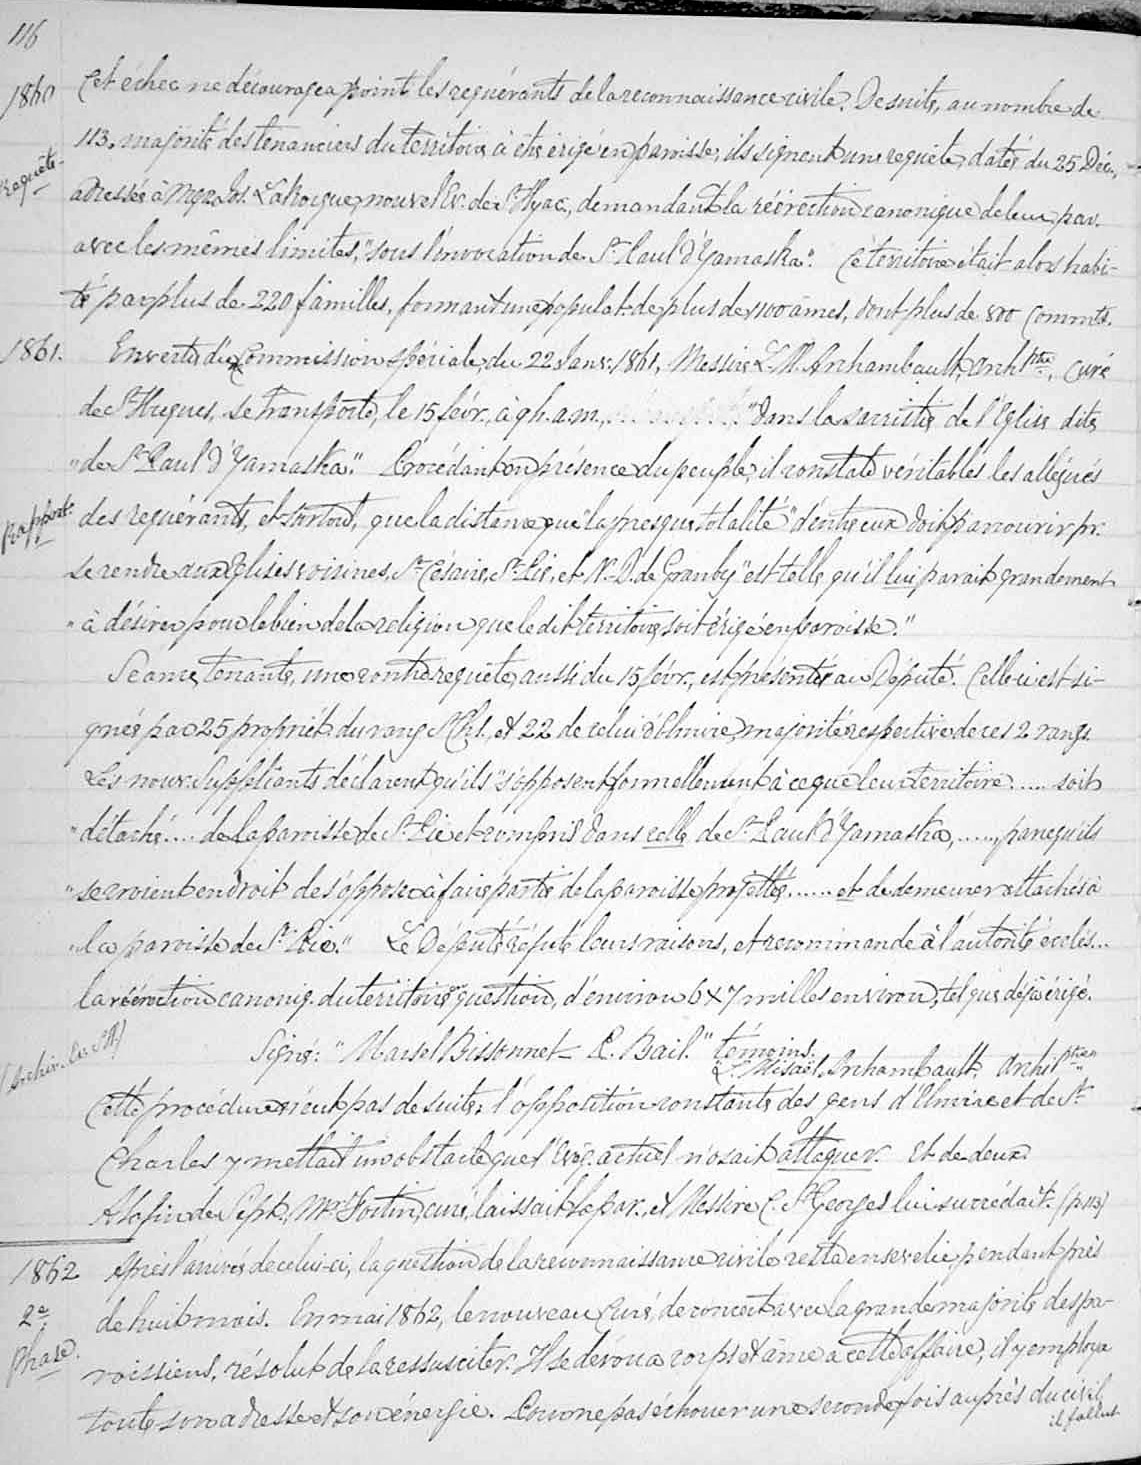 116
1860 Cet échec ne découragea point les requérants de la reconnaissance civile. De suite, au nombre de
113, majorité des tenanciers du territoire à être érigé en paroisse, ils signent une requête, datée du 25 Déc.,
Requête- adressée à Mgr Jos. LaRocque, nouvel Ev. de St Hyac., demandant la réérection canonique de leur par.
avec les mêmes limites, "sous l'invocation de St Paul d'Yamaska". Ce territoire était alors habi-
té par plus de 220 familles, formant une populat. de plus de 1100 âmes, dont plus de 800 Commts.
1861. En vertu d'une Commission spéciale, du 22 Janv. 1861, Messire L. M. Archambault, Archptre, curé
de St Hugues, se transporte, le 15 févr., à 9 h. a. m., "dans la sacristie de l'Eglise dite
"de St Paul d'Yamaska." Procédant en présence du peuple, il constate véritables les allégués
Rapport- des requérants, et surtout, que la distance que "la presque totalité" d'entre eux doit parcourir pr.
se rendre aux Eglises voisines, St Césaire, St Pie, et N.-D. de Granby "est telle qu'il lui parait grandement
"à désirer pour le bien de la religion que le dit territoire soit érigé en paroisse."
Séance tenante, une contre requête, aussi du 15 févr., est présentée au Député. Celle-ci est si-
gnée par 25 propriét. du rang St Chs., et 22 de celui d'Elmire, majorité respective de ces 2 rangs.
Les nouv. Suppliants déclarent qu'ils "s'opposent formellement à ce que leur territoire ..... soit
"détaché .... de la paroisse de St Pie et compris dans celle de St Paul d'Yamaska, ......, parcequ'ils
"se croient en droit de s'opposer à faire partie de la paroisse projettée ...... et de demeurer attachés à
"la paroisse de St Pie." Le Député réfute leurs raisons, et recommande à l'autorité ecclés...
la réérection canoniq. du territoire question, d'environ 6 x 7 milles environ, tel que déjà érigé.
Signé: "Marsel Bissonnet - P. Bail." témoins.
(Archiv. de St P.) L. Misaël Archambault, Archiptre
Cette procédure n'eut pas de suite: l'opposition constante des gens d'Elmire et de St
Charles y mettait un obstacle que l'Evêq. actuel n'osait attaquer. Et de deux.
A la fin de Sept., Mr Fortin, curé, laissait la par., et Messire C. St Georges lui succédait. (p. 113)
1862 Après l'arrivée de celui-ci, la question de la reconnaissance civile resta ensevelie pendant près
2e de huit mois. En mai 1862, le nouveau Curé, de concert avec la grande majorité des pa-
Phase. roissiens, résolut de la ressusciter. Il se dévoua corps et âme à cette affaire, il y employa
toute son adresse et son énergie. Pour ne pas échouer une seconde fois auprès du civil,
il fallut